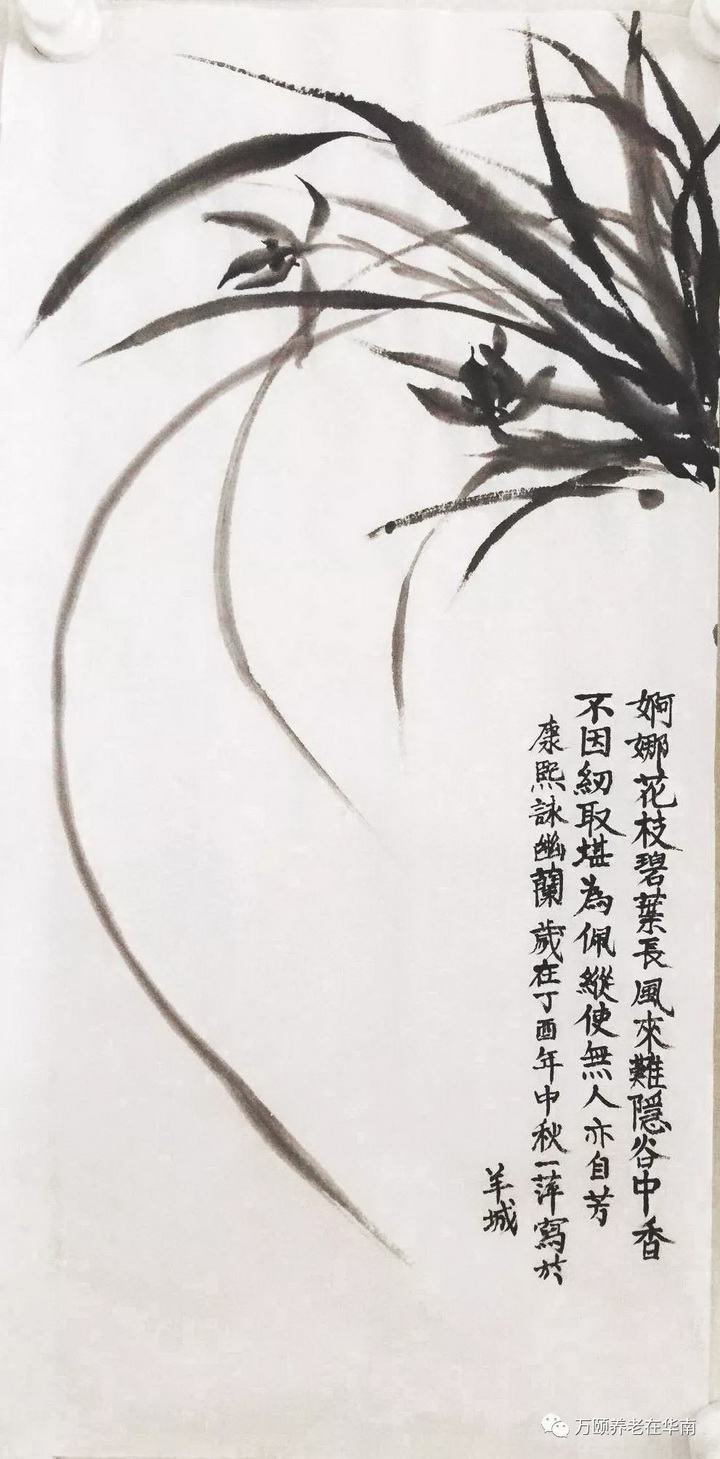 婀娜花枝碧葉長風來難隱谷中香
不因紉取堪為佩縱使無人亦自芳
康熙詠幽蘭歲在丁酉年中秋一萍寫於
羊城
万颐养老在华南